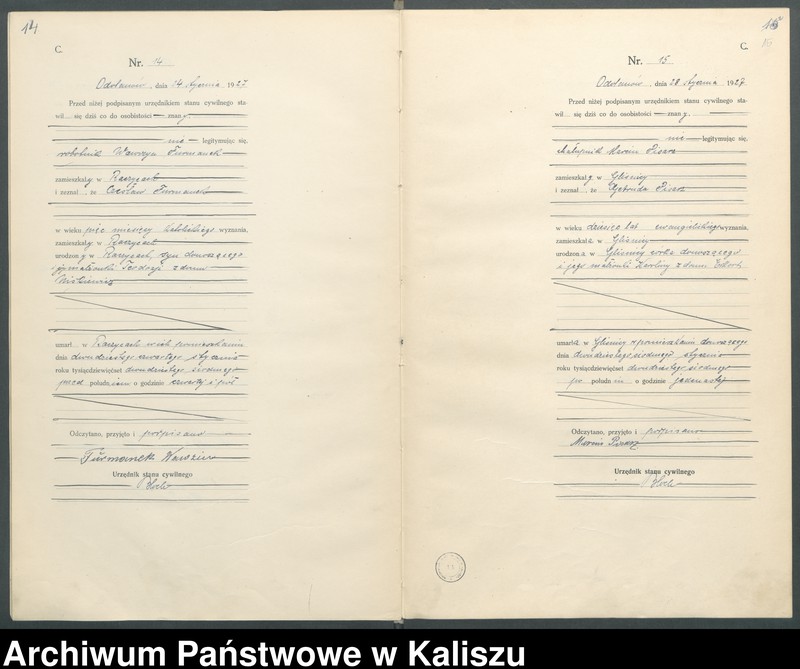 14
C.
Nr. 14
Odolanów, dnia 24 stycznia 1927
Przed niżej podpisanym urzędnikiem stanu cywilnego sta-
wił się dziś co do osobistości — znany
nie — legitymując się,
robotnik Wawrzyn Furmanek
zamieszkały w Raczycach
i zeznał, że Czesław Furmanek
w wieku pięć miesięcy katolickiego wyznania,
zamieszkały w Raczycach
urodzony w Raczycach, syn donoszącego
i jego małżonki z domu
umarł w Raczycach w ich pomieszkaniu
dnia dwudziestego czwartego stycznia
roku tysiącdziewięćset dwudziestego siódmego
przed południem o godzinie czwartej i pół
Odczytano, przyjęto i podpisano
Furmanek
Urzędnik stanu cywilnego
15
C.
Nr. 15
Odolanów, dnia 28 stycznia 1927
Przed niżej podpisanym urzędnikiem stanu cywilnego sta-
wił się dziś co do osobistości — znany
nie — legitymując się,
chałupnik Marcin
zamieszkały w Gliśnicy
i zeznał, że
w wieku dziesięć lat ewangielickiego wyznania,
zamieszkała w Gliśnicy
urodzona w Gliśnicy córka donoszącego
i jego małżonki Karoliny z domu
umarła w Gliśnicy w pomieszkaniu donoszącego
dnia dwudziestego siódmego stycznia
roku tysiącdziewięćset dwudziestego siódmego
po południu o godzinie jedenastej
Odczytano, przyjęto i podpisano
Marcin
Urzędnik stanu cywilnego
Archiwum Państwowe w Kaliszu